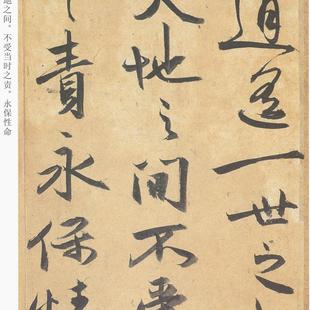 逍遙一世之
天地之間不受
責永保
之间，不受当时之责，永保性命